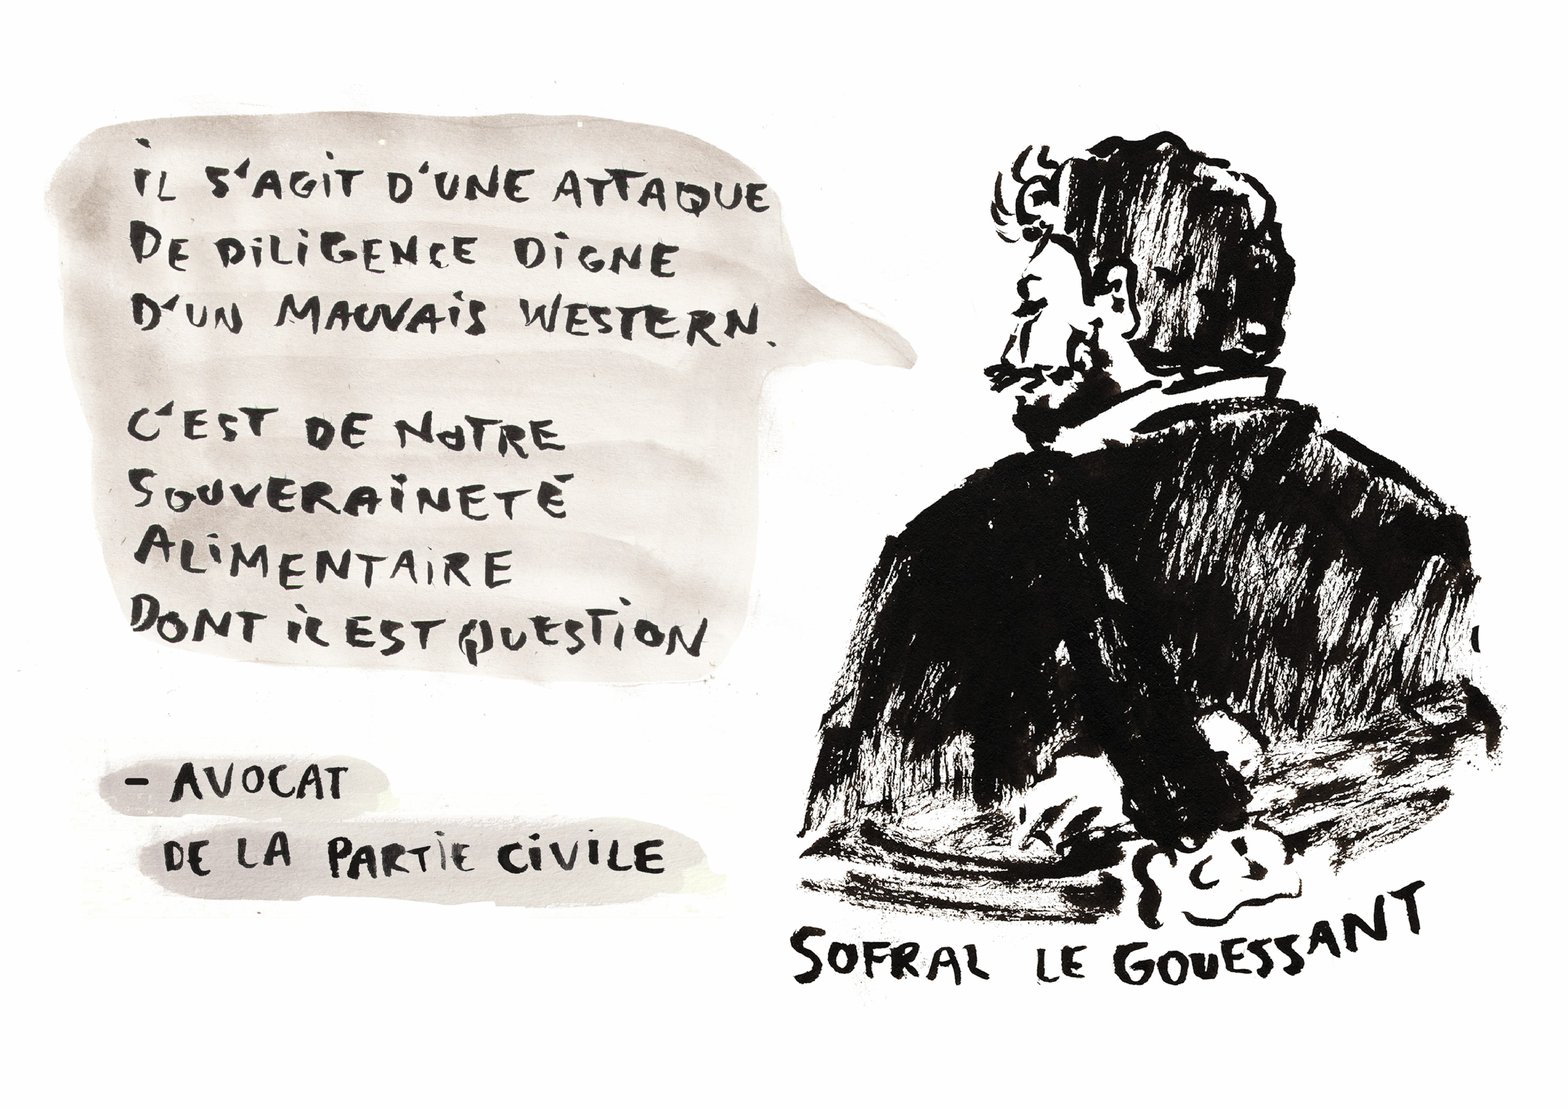 IL S'AGIT D'UNE ATTAQUE
DE DILIGENCE DIGNE
D'UN MAUVAIS WESTERN.
C'EST DE NOTRE
SOUVERAINETÉ
ALIMENTAIRE
DONT IL EST QUESTION
- AVOCAT
DE LA PARTIE CIVILE
SOFRAL LE GOUESSANT